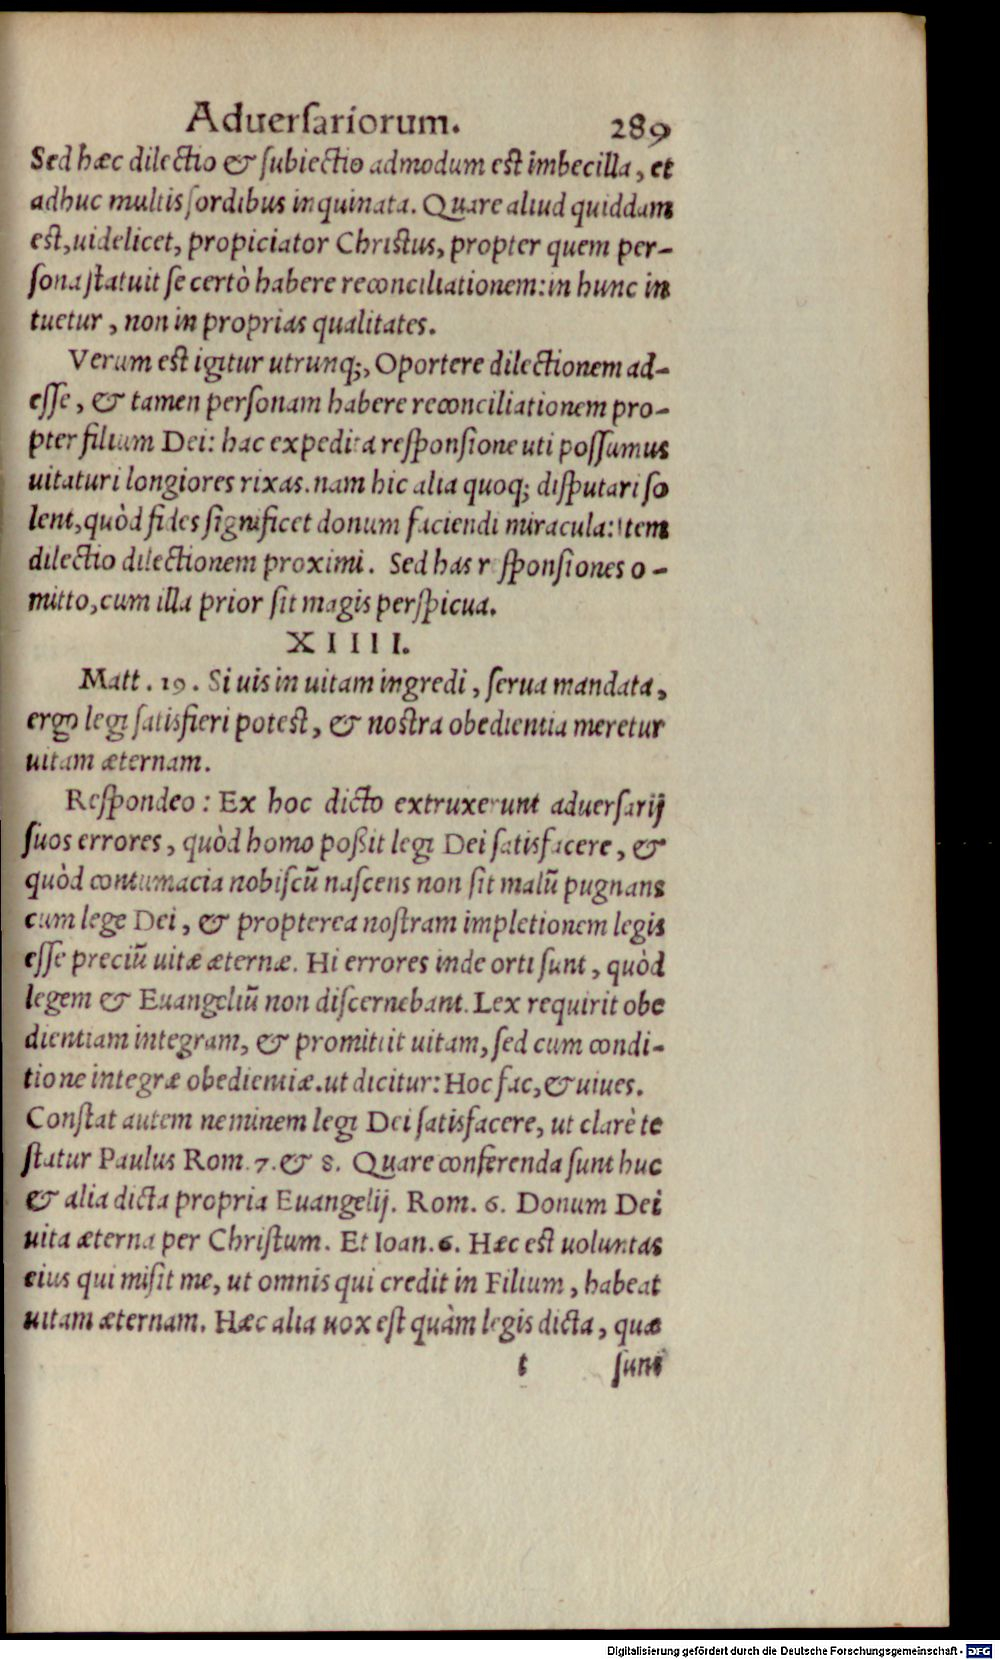 Aduersariorum. 289
Sed hæc dilectio & subiectio admodum est imbecilla, et
adhuc multis sordibus inquinata. Quare aliud quiddam
est, uidelicet, propiciator Christus, propter quem per-
sona statuit se certò habere reconciliationem: in hunc in
tuetur, non in proprias qualitates.
Verum est igitur utrunq;, Oportere dilectionem ad-
esse, & tamen personam habere reconciliationem pro-
pter filium Dei: hac expedita responsione uti possumus
uitaturi longiores rixas. nam hic alia quoq; disputari so
lent, quòd fides significet donum faciendi miracula: Item
dilectio dilectionem proximi. Sed has r sponsiones o-
mitto, cum illa prior sit magis perspicua.
XIIII.
Matt. 19. Si uis in uitam ingredi, serua mandata,
ergo legi satisfieri potest, & nostra obedientia meretur
uitam æternam.
Respondeo: Ex hoc dicto extruxerunt aduersarij
suos errores, quòd homo poßit legi Dei satisfacere, &
quòd contumacia nobiscũ nascens non sit malũ pugnans
cum lege Dei, & propterea nostram impletionem legis
esse preciũ uitæ æternæ. Hi errores inde orti sunt, quòd
legem & Euangeliũ non discernebant. Lex requirit obe
dientiam integram, & promittit uitam, sed cum condi-
tione integræ obedientiæ. ut dicitur: Hoc fac, & uiues.
Constat autem neminem legi Dei satisfacere, ut clarè te
statur Paulus Rom. 7. & 8. Quare conferenda sunt huc
& alia dicta propria Euangelij. Rom. 6. Donum Dei
uita æterna per Christum. Et Ioan. 6. Hæc est uoluntas
eius qui misit me, ut omnis qui credit in Filium, habeat
uitam æternam. Hæc alia uox est quàm legis dicta, quæ
t sunt
Digitalisierung gefördert durch die Deutsche Forschungsgemeinschaft - DFG